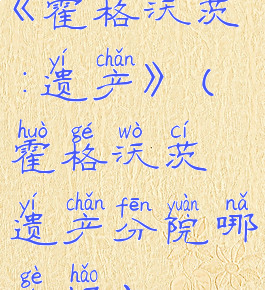 《霍格沃茨
yí chǎn
:遗产》(
huò gé wò cí
霍格沃茨
yí chǎn fēn yuàn nǎ
遗产分院哪
gè hǎo